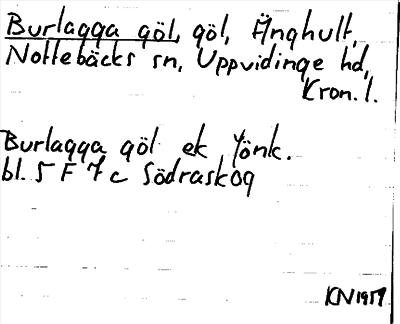 Burlagga göl, göl, Änghult,
Nottebäcks sn, Uppvidinge hd,
Kron. l.
Burlagga göl ek Jönk.
bl. 5 F 7 c Södraskog
KN 1957